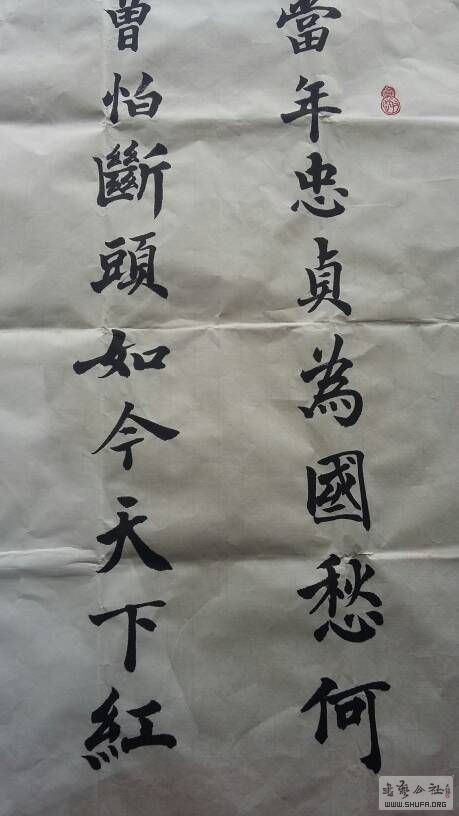 當年忠貞為國愁何
曾怕斷頭如今天下紅
WWW.SHUFA.ORG